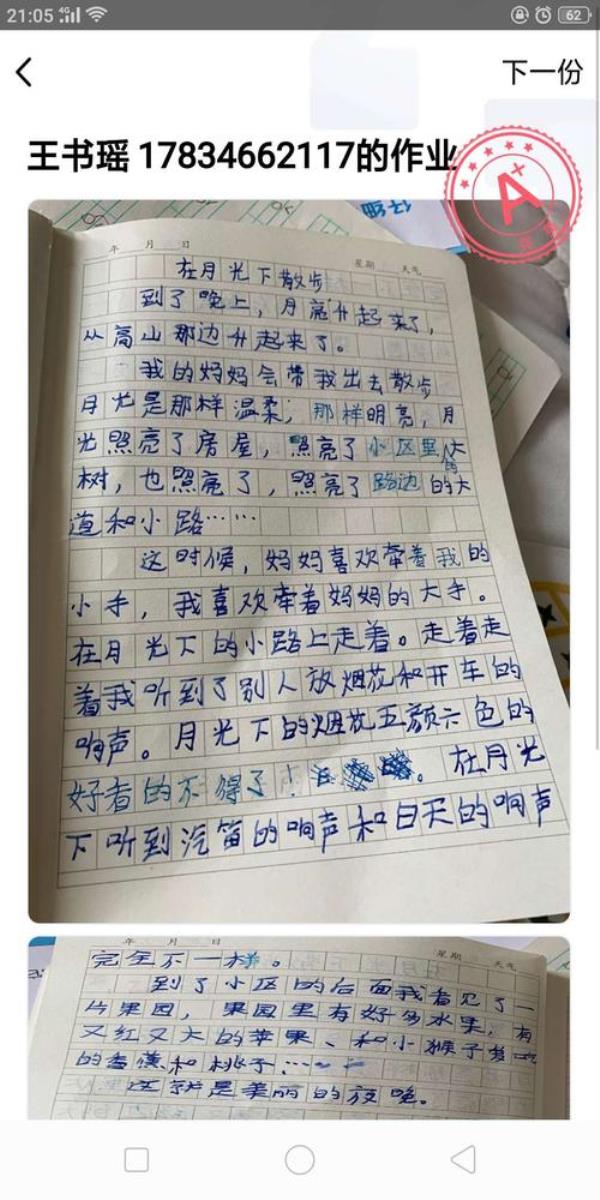 21:05 4G 62
下一份
王书瑶 17834662117的作业
A+
年 月 日 星期 天气
在月光下散步
到了晚上，月亮升起来了，
从高山那边升起来了。
我的妈妈会带我出去散步
月光是那样温柔，那样明亮，月
光照亮了房屋，照亮了小区里的大
树，也照亮了，照亮了路边的大
道和小路……
这时候，妈妈喜欢牵着我的
小手，我喜欢牵着妈妈的大手。
在月光下的小路上走着。走着走
着我听到了别人放烟花和开车的
响声。月光下的烟花五颜六色的
好看的不得了！。在月光
下听到汽笛的响声和白天的响声
年 月 日 星期 天气
完全不一样。
到了小区的后面我看见了一
片果园，果园里有好多水果，有
又红又大的苹果、和小猴子
的香蕉和桃子……
这就是美丽的夜晚。